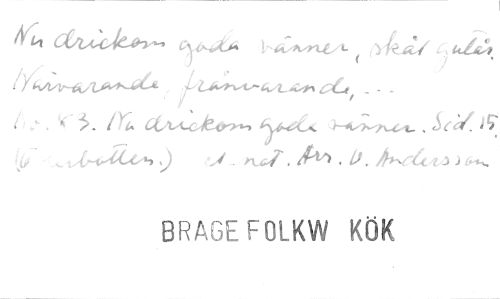 Nu drickom goda vänner, skål gutår.
Närvarande, frånvarande, ...
No. 83. Nu drickom goda vänner. Sid. 15.
(Österbotten.) et. nat. Arr. O. Andersson
BRAGE FOLKW KÖK